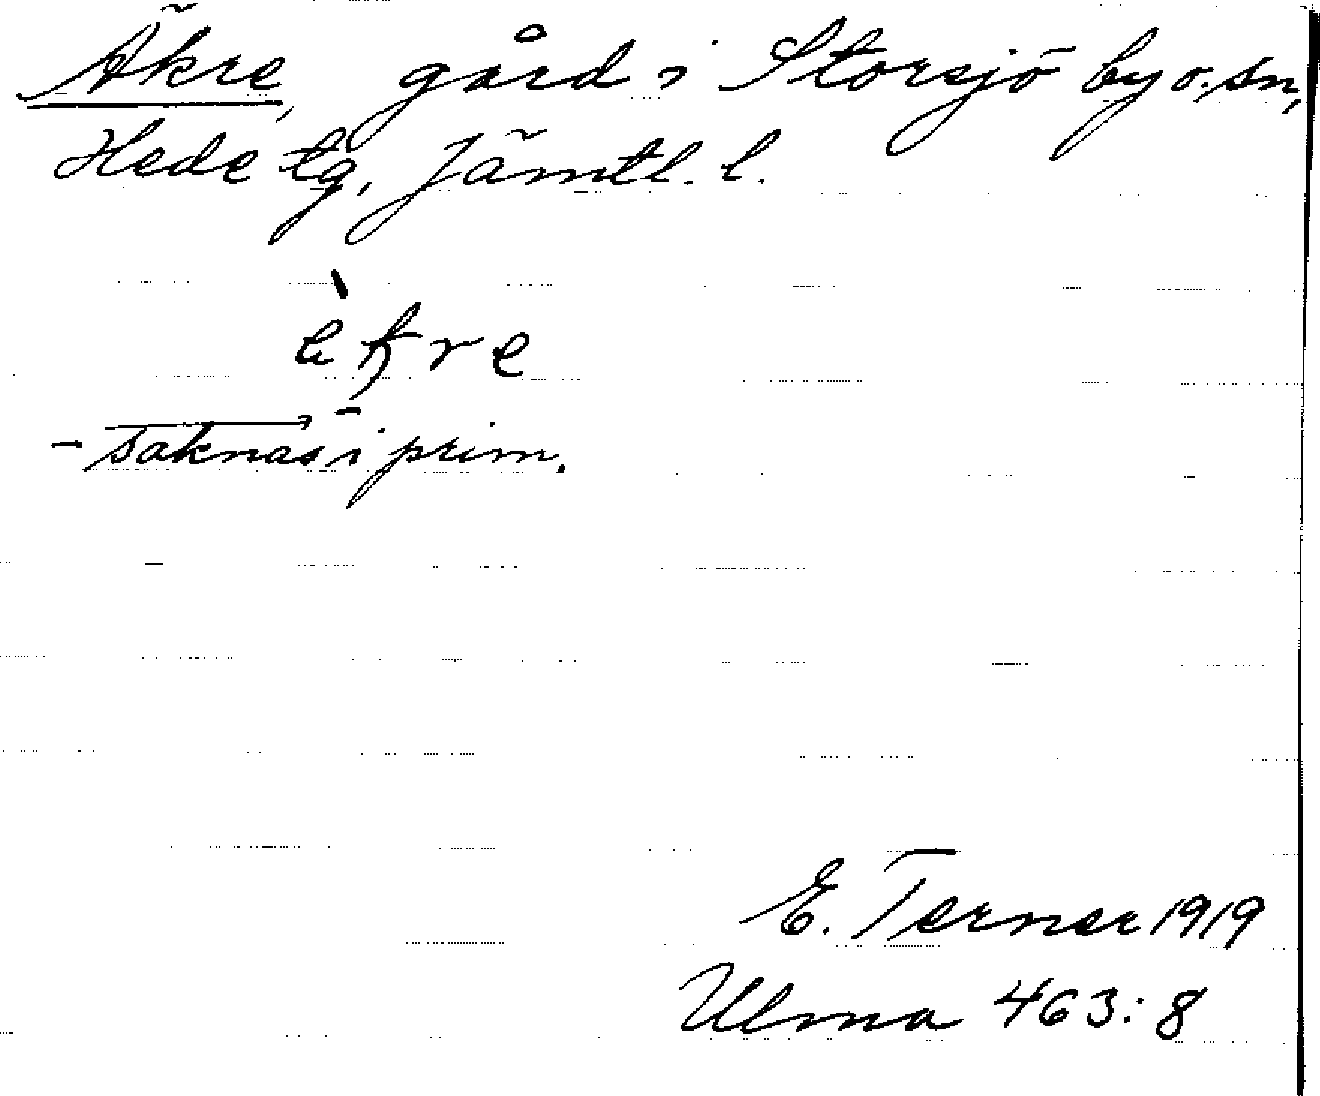 Äkre, gård i Storsjö by o. sn,
Hede tg, Jämtl. l.
èkre
- saknas i prim.
E. Terner 1919
Ulma 463:8